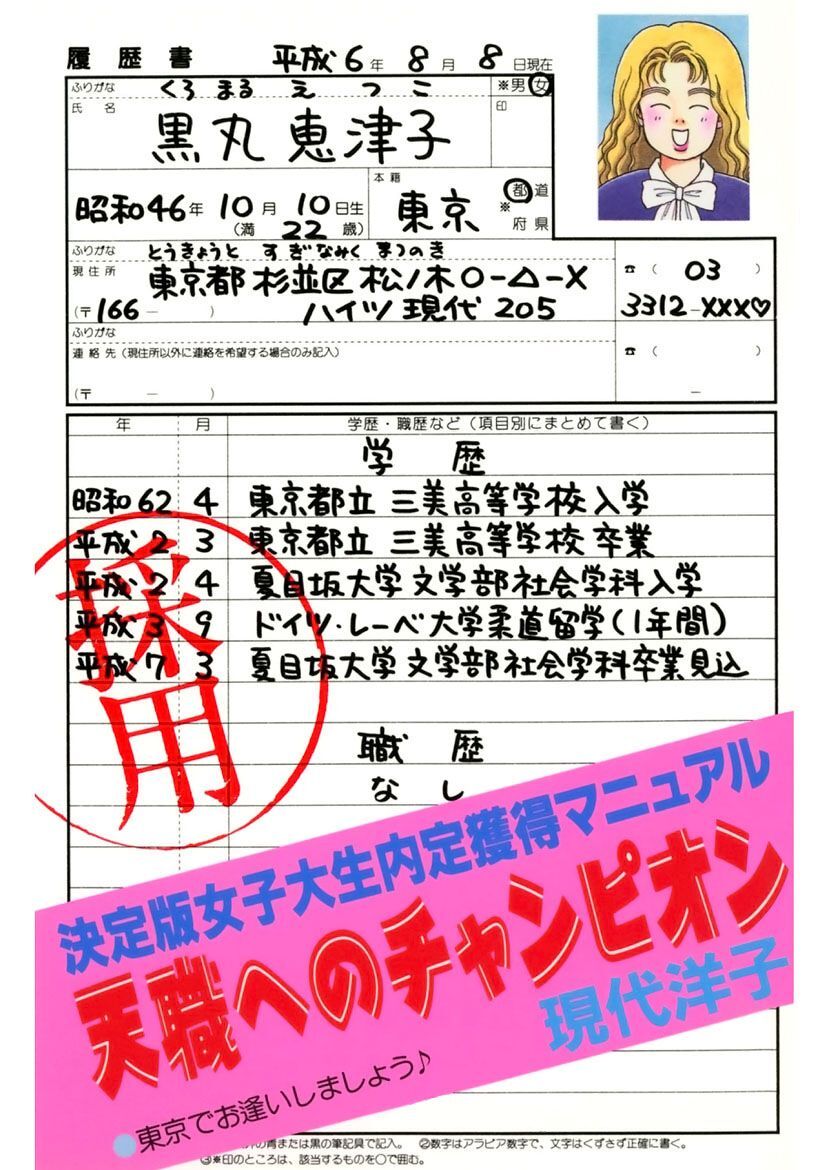 履歴書 平成6年8月8日現在
ふりがな くろ まる え つ こ ※男 女
氏名 黒丸恵津子 印
昭和46年10月10日生
(満22歳)
本籍 東京 ※都道府県
ふりがな とうきょうと すぎなみく まつのき
現住所 東京都杉並区松ノ木〇-△-X ☎(03)
(〒166- ) ハイツ現代205 3312-XXX♡
ふりがな
連絡先(現住所以外に連絡を希望する場合のみ記入) ☎( )
(〒 - ) -
年 月 学歴・職歴など(項目別にまとめて書く)
学歴
昭和62 4 東京都立三美高等学校入学
平成2 3 東京都立三美高等学校卒業
平成2 4 夏目坂大学文学部社会学科入学
平成3 9 ドイツ・レーベ大学柔道留学(1年間)
平成7 3 夏目坂大学文学部社会学科卒業見込
採用
職歴
なし
決定版女子大生内定獲得マニュアル
天職へのチャンピオン
現代洋子
●東京でお逢いしましょう♪
の青または黒の筆記具で記入。 ②数字はアラビア数字で、文字はくずさず正確に書く。
③※印のところは、該当するものを〇で囲む。